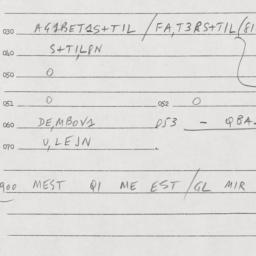 030 AG1BET1S+TIL / FA,T3RS+TIL/81
040 S+TIL8N
050 0
051 0 052 0
060 DE,MBOV1 053 - QBA.
070 U,LEJN .
900 MEST QI ME EST /GL MIR